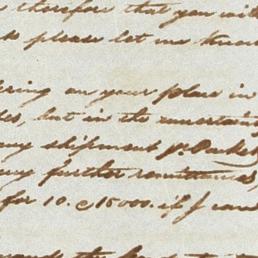 therefore that you will
please let me know
on your place in
but in the uncertain
any shipment pr. Packet
any further remittances,
for 10. @ 15000. if I can